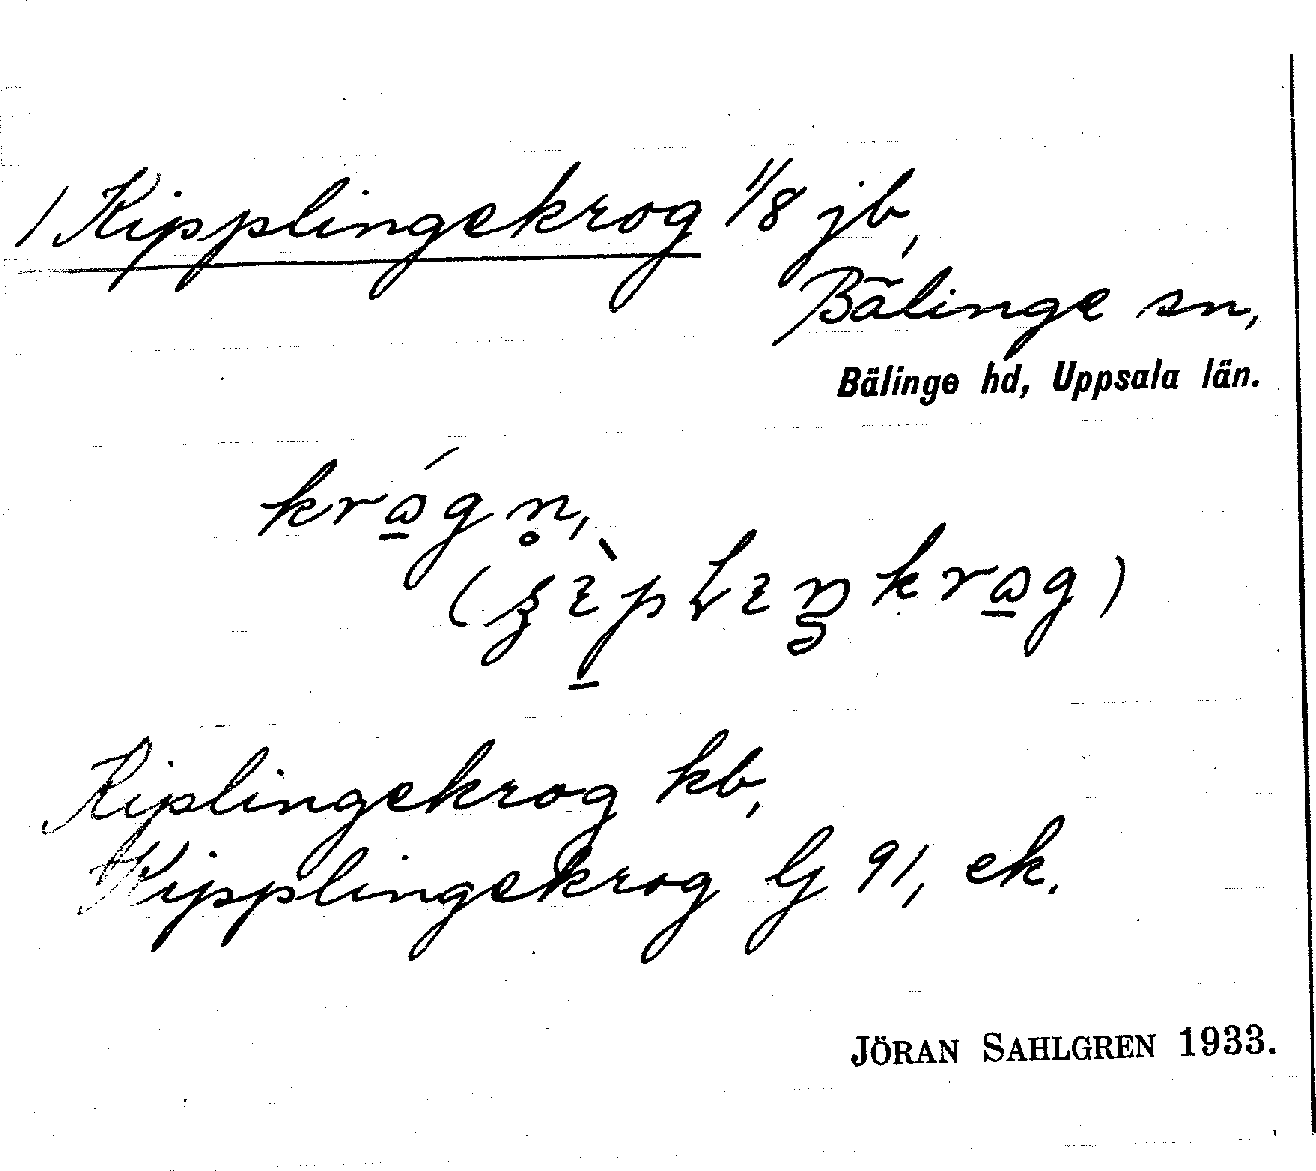 1 Kipplingekrog 1/8 jb,
Bälinge sn,
Bälinge hd, Uppsala län.
Kiplingekrog kb,
Kipplingekrog Gj 91, ek.
JÖRAN SAHLGREN 1933.